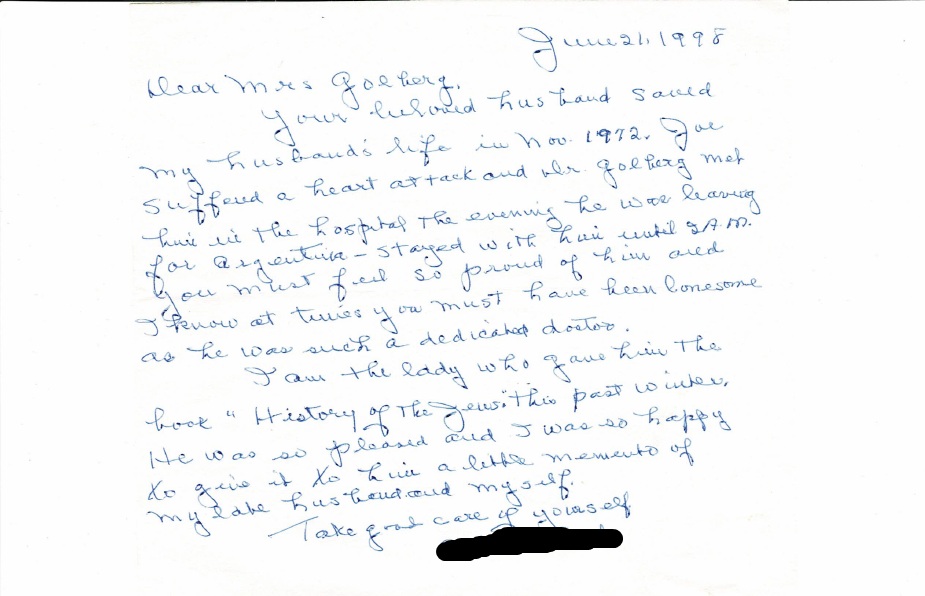 June 21, 1998
Dear Mrs Golberg,
Your beloved husband saved
my husband's life in Nov. 1972. Joe
suffered a heart attack and Dr. Golberg met
him in the hospital the evening he was leaving
for Argentina - stayed with him until 2 A.M.
You must feel so proud of him and
I know at times you must have been lonesome
as he was such a dedicated doctor.
I am the lady who gave him the
book "History of The Jews" this past winter.
He was so pleased and I was so happy
to give it to him a little memento of
my late husband and myself.
Take good care of yourself